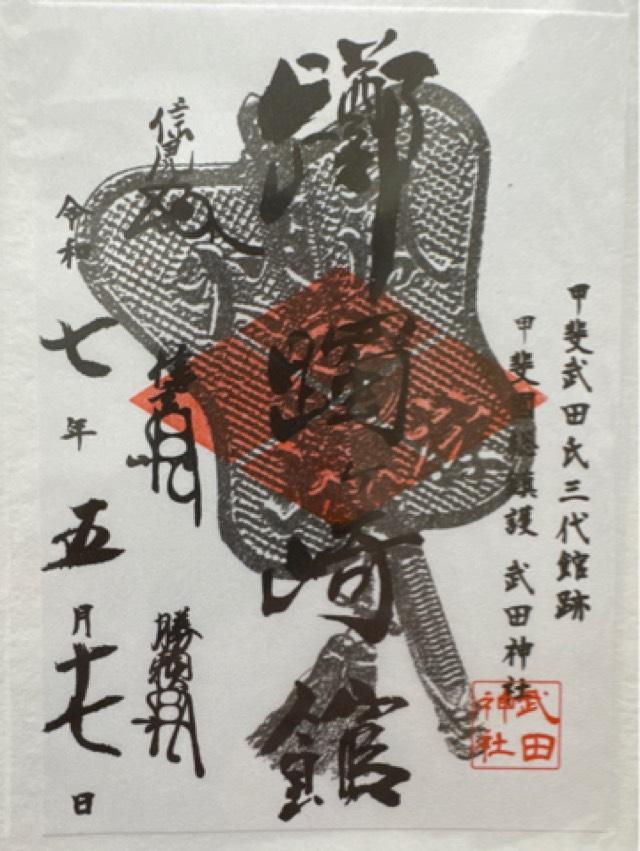 甲斐武田氏三代館跡
甲斐国総鎮護 武田神社
武田神社
躑躅ヶ崎館
信虎
勝頼
令和七年五月十七日